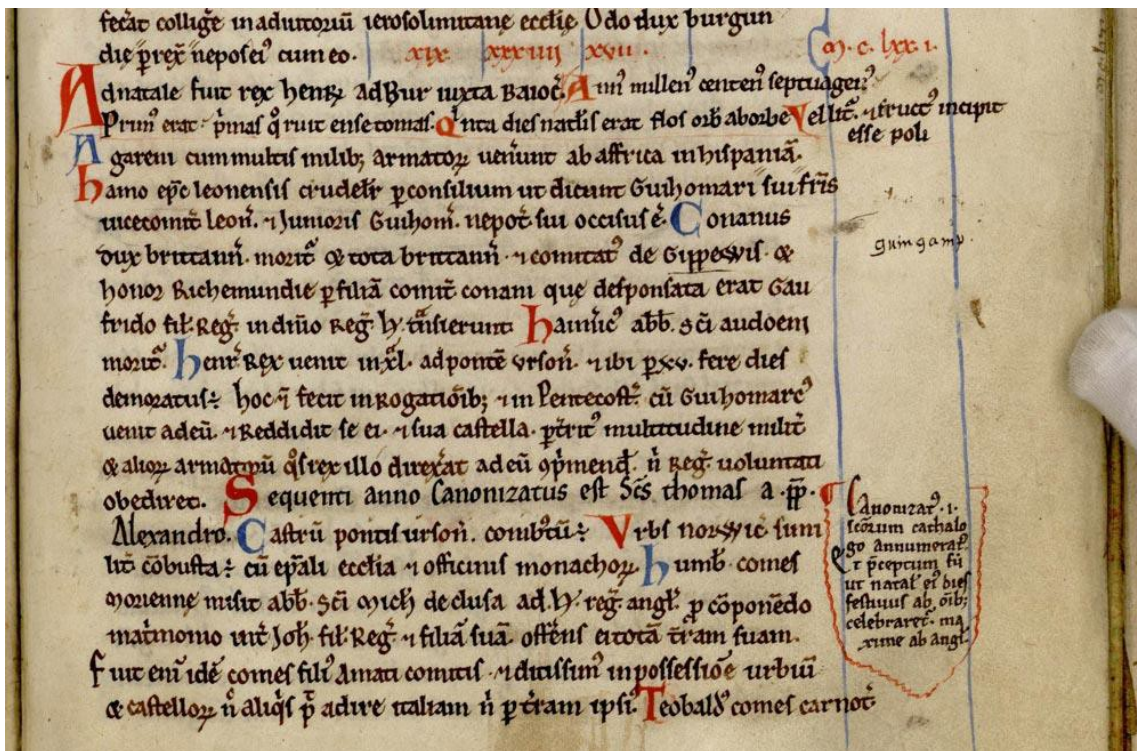 fecat collige in adiutoriũ ierosolimitane ecclie. Odo dux burgun
die p̄ rex nepos ei᷒ cum eo. xix xxxiiii xvii. m. c. lxx. i.
Ad natale fuit rex henr᷒ ad Bur iuxta Baioc᷒. Ann᷒ millen᷒ centen᷒ septuagen᷒
Prim᷒ erat. p̄mas q̊ ruit ense tomas. Qinta dies natlis erat flos orb᷒ ab orbe Vellit᷒. ⁊ fruct᷒ incipit
esse poli
Agareni cum multis milib; armatoꝝ uenẽunt ab affrica in hispaniã.
hamo ep̄c leonensis crudelit̃ p̱ consilium ut dicunt Guihomari sui fr̃is
uicecomit̃ leoñ. ⁊ Junioris Guihom̃. nepot̃ sui occisus ẽ. Conanus
dux brittanñ. morit᷒ & tota brittanñ. ⁊ comitat᷒ de Gippewis. &
guingamp.
honor Richemundie p̱ filiã comit̃ conani que desponsata erat Gau
frido fil̃. Reg̃. in dñio Reg̃. h᷒. t̃nsierunt. haimic᷒ abb̃. sc̃i audoeni
morit᷒. henr̃ Rex uenit in xl̃. ad pontẽ ursoñ. ⁊ ibi p̱ xv. fere dies
demoratus: hoc ⁊ fecit in Rogatiõib; ⁊ in Pentecost̃. cũ Guihomarc᷒
uenit ad eũ. ⁊ Reddidit se ei. ⁊ sua castella. p̱t̃rit᷒ multitudine milit̃
& alioꝝ armatoꝝũ q̊s rex illo direxat ad eũ ꝯp̃mend̃. ñ Reg̃. uoluntati
obediret. Sequenti anno Canonizatus est Sc̃s thomas a .p̄p̄.
Alexandro. Castrũ pontis ursoñ. combustũ: Urbs norwic̃. simi
lit̃ cõbusta: cũ ep̃ali ecclia ⁊ officinis monachoꝝ. humb̃. comes
morienne misit abb̃. sc̃i mich̃. de clusa ad .h᷒. reg̃. angl̃. p̱ cõponẽdo
mat̃monio int̃ Joh̃. fil̃. Reg̃. ⁊ filiã suã. offẽns ei totã t̃ram suam.
Fuit eni᷒ idẽ comes fili᷒ Amati comitis. ⁊ ditissim᷒ in possessiõe urbiũ
& castelloꝝ ñ aliq̃s p̃t adire italiam ñ p̱ t̃ram ipsi᷒. Teobald᷒ comes carnot̃
Canonizat᷒ .i.
sc̃orum cathalo
go annumerat᷒.
Et p̃ceptum fũ
ut natal̃ ei᷒ dies
festiuus ab oĩb;
celebraret᷒. ma
xime ab angl̃.